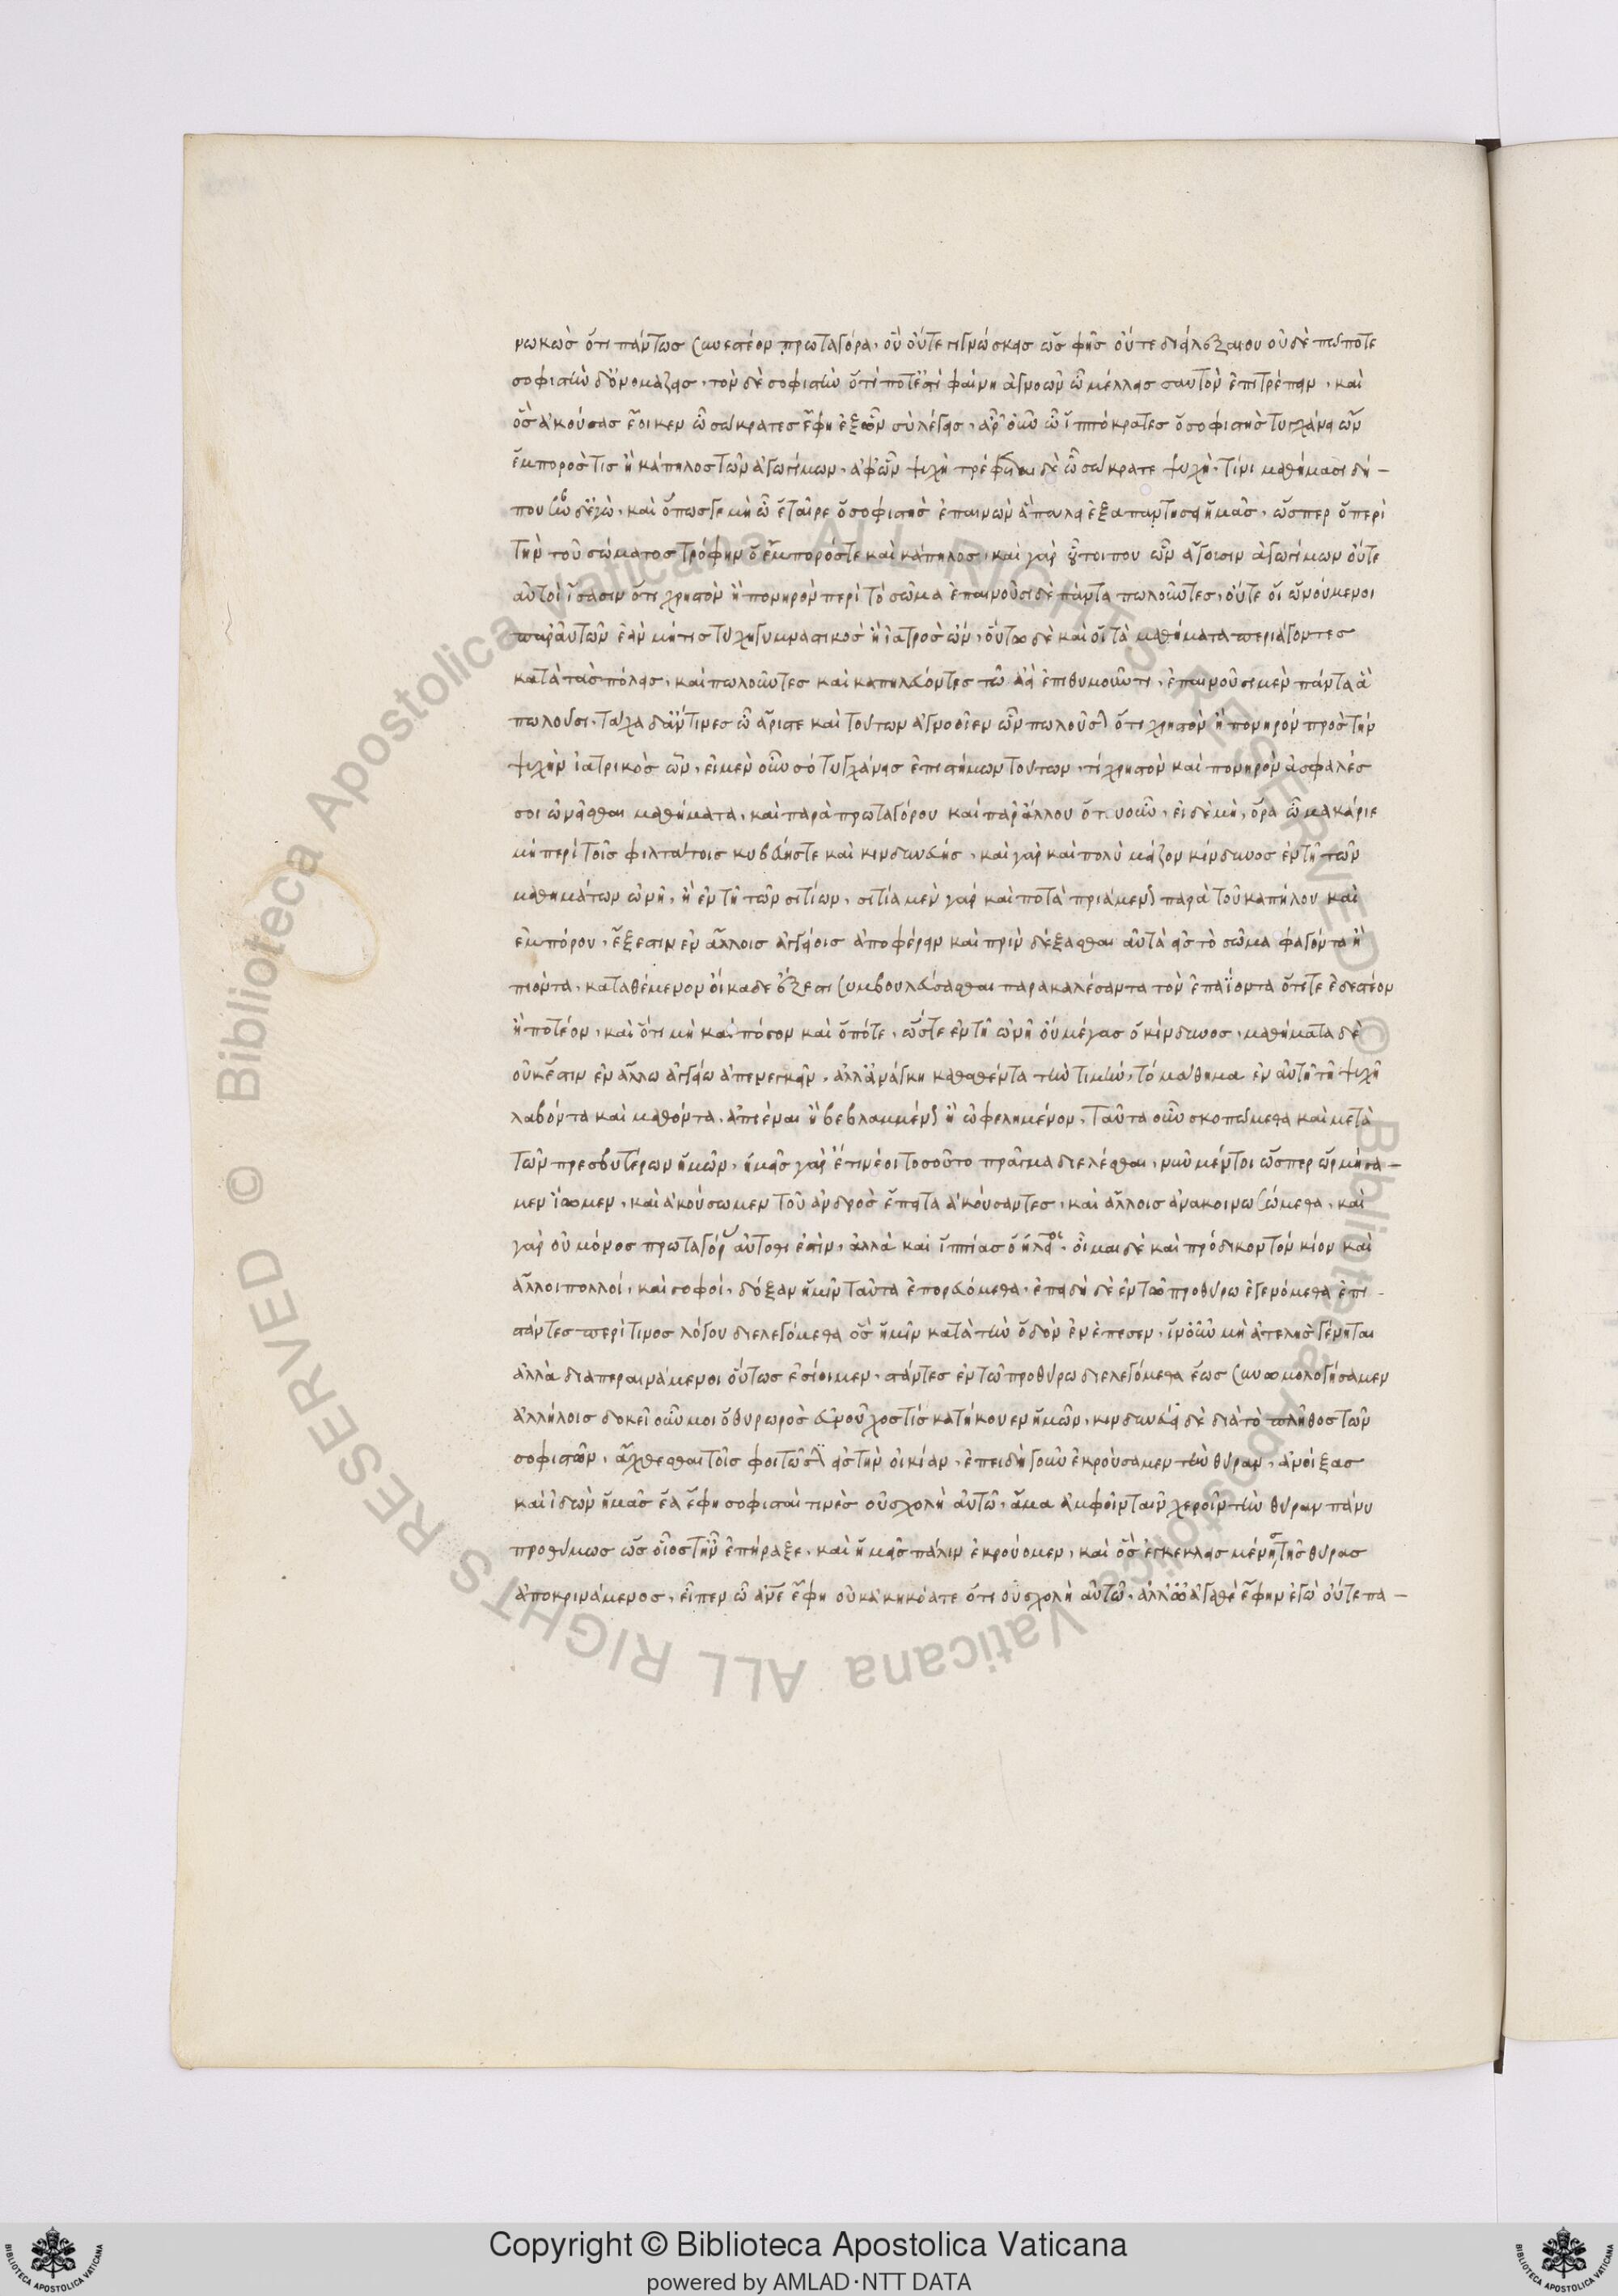 νωκὼς ὅτι πάντως συνεστέον πρωταγόρα, ὃν οὔτε γιγνώσκεις ὡς φῂς οὔτε διείλεξαι οὐδὲ πώποτε
σοφιστὴν δ' ὀνομάζεις, τὸν δὲ σοφιστὴν ὅτί ποτ' ἔστι φαίνη ἀγνοῶν ὧ μέλλεις σαυτὸν ἐπιτρέπειν, καὶ
ὃς ἀκούσας ἔοικεν ὦ σώκρατες ἔφη ἐξ ὧν σὺ λέγεις, ἆρ' οὖν ὦ ἱππόκρατες ὁ σοφιστὴς τυγχάνει ὢν
ἔμπορός τις ἢ κάπηλος τῶν ἀγωγίμων, ἀφ' ὧν ψυχὴ τρέφεται δὲ ὦ σώκρατε ψυχὴ, τίνι μαθήμασι δή-
που ἦν δ' ἐγὼ, καὶ ὅπως γε μὴ ὦ ἑταῖρε ὁ σοφιστὴς ἐπαινῶν ἃ πωλεῖ ἐξαπατήσει ἡμᾶς, ὥσπερ ὁ περὶ
τὴν τοῦ σώματος τρόφην ὁ ἔμπορός τε καὶ κάπηλος, καὶ γάρ οὗτοι που ὧν ἄγουσιν ἀγωγίμων οὔτε
αὐτοὶ ἴσασιν ὅτι χρηστὸν ἢ πονηρὸν περὶ τὸ σῶμα ἐπαινοῦσι δὲ πάντα πωλοῦντες, οὔτε οἱ ὠνούμενοι
παρ' αὐτῶν ἐὰν μή τις τύχη γυμναστικὸς ἢ ἰατρὸς ὤν, οὕτω δὲ καὶ οἱ τὰ μαθήματα περιάγοντες
κατὰ τὰς πόλεις, καὶ πωλοῦντες καὶ καπηλεύοντες τῶ ἀεὶ ἐπιθυμοῦντι, ἐπαινοῦσι μὲν πάντα ἃ
πωλοῦσι, τάχα δ' ἄν τινες ὦ ἄριστε καὶ τούτων ἀγνοοῖεν ὧν πωλοῦσιν ὅτι χρηστὸν ἢ πονηρὸν πρὸς τὴν
ψυχὴν ἰατρικὸς ὢν, εἰ μὲν οὖν σὺ τυγχάνεις ἐπιστήμων τούτων, τί χρηστὸν καὶ πονηρὸν ἀσφαλές
σοι ὠνεῖσθαι μαθήματα, καὶ παρὰ πρωταγόρου καὶ παρ' ἄλλου ὁτουοῦν, εἰ δὲ μὴ, ὅρα ὦ μακάριε
μὴ περὶ τοῖς φιλτάτοις κυβεύης τε καὶ κινδυνεύης, καὶ γὰρ καὶ πολὺ μείζον κίνδυνος ἐν τῆ τῶν
μαθημάτων ὠνῆ, ἢ ἐν τῆ τῶν σιτίων, σιτία μὲν γὰρ καὶ ποτὰ πριάμενον παρὰ τοῦ καπήλου καὶ
ἐμπόρου, ἔξεστιν ἐν ἄλλοις ἀγγείοις ἀποφέρειν καὶ πρὶν δέξασθαι αὐτὰ εἰς τὸ σῶμα φαγόντα ἢ
πιόντα, καταθέμενον οἴκαδε ἔξεστι συμβουλεύσασθαι παρακαλέσαντα τὸν ἐπαΐοντα ὅτι τε ἐδεστέον
ἢ ποτέον, καὶ ὅτι μὴ καὶ πόσον καὶ ὁπότε, ὥστε ἐν τῆ ὠνῆ οὐ μέγας ὁ κίνδυνος, μαθήματα δὲ
οὐκ ἔστιν ἐν ἄλλω ἀγγείω ἀπενεγκεῖν, ἀλλ' ἀνάγκη καθαθέντα τὴν τιμὴν, τὸ μάθημα ἐν αὐτῆ τῆ ψυχῆ
λαβόντα καὶ μαθόντα, ἀπιέναι ἢ βεβλαμμένον ἢ ὠφελημένον, ταῦτα οὖν σκοπώμεθα καὶ μετὰ
τῶν πρεσβυτέρων ἡμῶν, ἡμεῖς γὰρ ἔτι νέοι τοσοῦτο πρᾶγμα διελέσθαι, νῦν μέντοι ὥσπερ ὡρμήσα-
μεν ἴωμεν, καὶ ἀκούσωμεν τοῦ ἀνδρὸς ἔπειτα ἀκούσαντες, καὶ ἄλλοις ἀνακοινωσώμεθα, καὶ
γὰρ οὐ μόνος πρωταγόρας αὐτόθι ἐστὶν, ἀλλὰ καὶ ἱππίας ὁ ἠλεῖος, οἶμαι δὲ καὶ πρόδικον τὸν κίον καὶ
ἄλλοι πολλοί, καὶ σοφοί, δόξαν ἡμῖν ταῦτα ἐπορευόμεθα, ἐπειδὴ δὲ ἐν τῶ προθύρω ἐγενόμεθα ἐπι-
στάντες περί τινος λόγου διελεγόμεθα ὃς ἡμῖν κατὰ τὴν ὁδὸν ἐνέπεσεν, ἵν' οὖν μὴ ἀτελὴς γένηται
ἀλλὰ διαπεραινάμενοι οὕτως ἐσίοιμεν, στάντες ἐν τῶ προθύρω διελεγόμεθα ἕως συνωμολογήσαμεν
ἀλλήλοις δοκεῖ οὖν μοι ὁ θυρωρὸς εὐνοῦχος τίς κατήκουεν ἡμῶν, κινδυνεύει δὲ διὰ τὸ πλῆθος τῶν
σοφιστῶν, ἄχθεσθαι τοῖς φοιτῶσιν εἰς τὴν οἰκίαν, ἐπειδὴ γοῦν ἐκρούσαμεν τὴν θύραν, ἀνοίξας
καὶ ἰδὼν ἡμᾶς ἔα ἔφη σοφισταί τινὲς οὐ σχολὴ αὐτῶ, ἅμα ἀμφοῖν ταῖν χεροῖν τὴν θύραν πάνυ
προθύμως ὡς οἷος τ' ἦν ἐπήραξε, καὶ ἡμεῖς πάλιν ἐκρούομεν, καὶ ὃς ἐγκεκλεισμένης τῆς θύρας
ἀποκρινάμενος, εἶπεν ὦ ἄνε ἔφη οὐκ ἀκηκόατε ὅτι οὐ σχολὴ αὐτῶ, ἀλλ' ὦ ἀγαθὲ ἔφην ἐγὼ οὔτε πα-
Copyright © Biblioteca Apostolica Vaticana
powered by AMLAD·NTT DATA